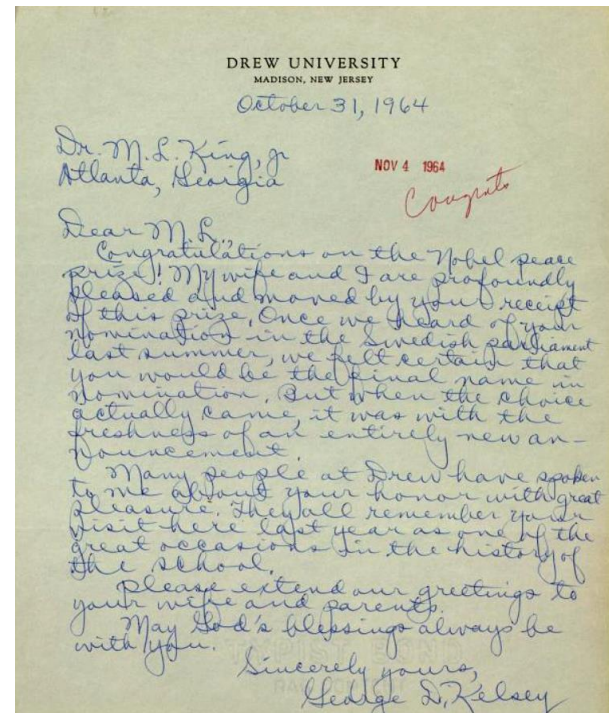 DREW UNIVERSITY
MADISON, NEW JERSEY
October 31, 1964
Dr. M. L. King, Jr
Atlanta, Georgia
NOV 4 1964
Congrats
Dear M. L.,
Congratulations on the Nobel peace
prize! My wife and I are profoundly
pleased and moved by your receipt
of this prize. Once we heard of your
nomination in the Swedish parliament
last summer, we felt certain that
you would be the final name in
nomination. But when the choice
actually came, it was with the
freshness of an entirely new an-
nouncement.
Many people at Drew have spoken
to me about your honor with great
pleasure. They all remember your
visit here last year as one of the
great occasions in the history of
the school.
Please extend our greetings to
your wife and parents.
May God's blessings always be
with you.
TYPIST BOND
Sincerely yours,
George D. Kelsey